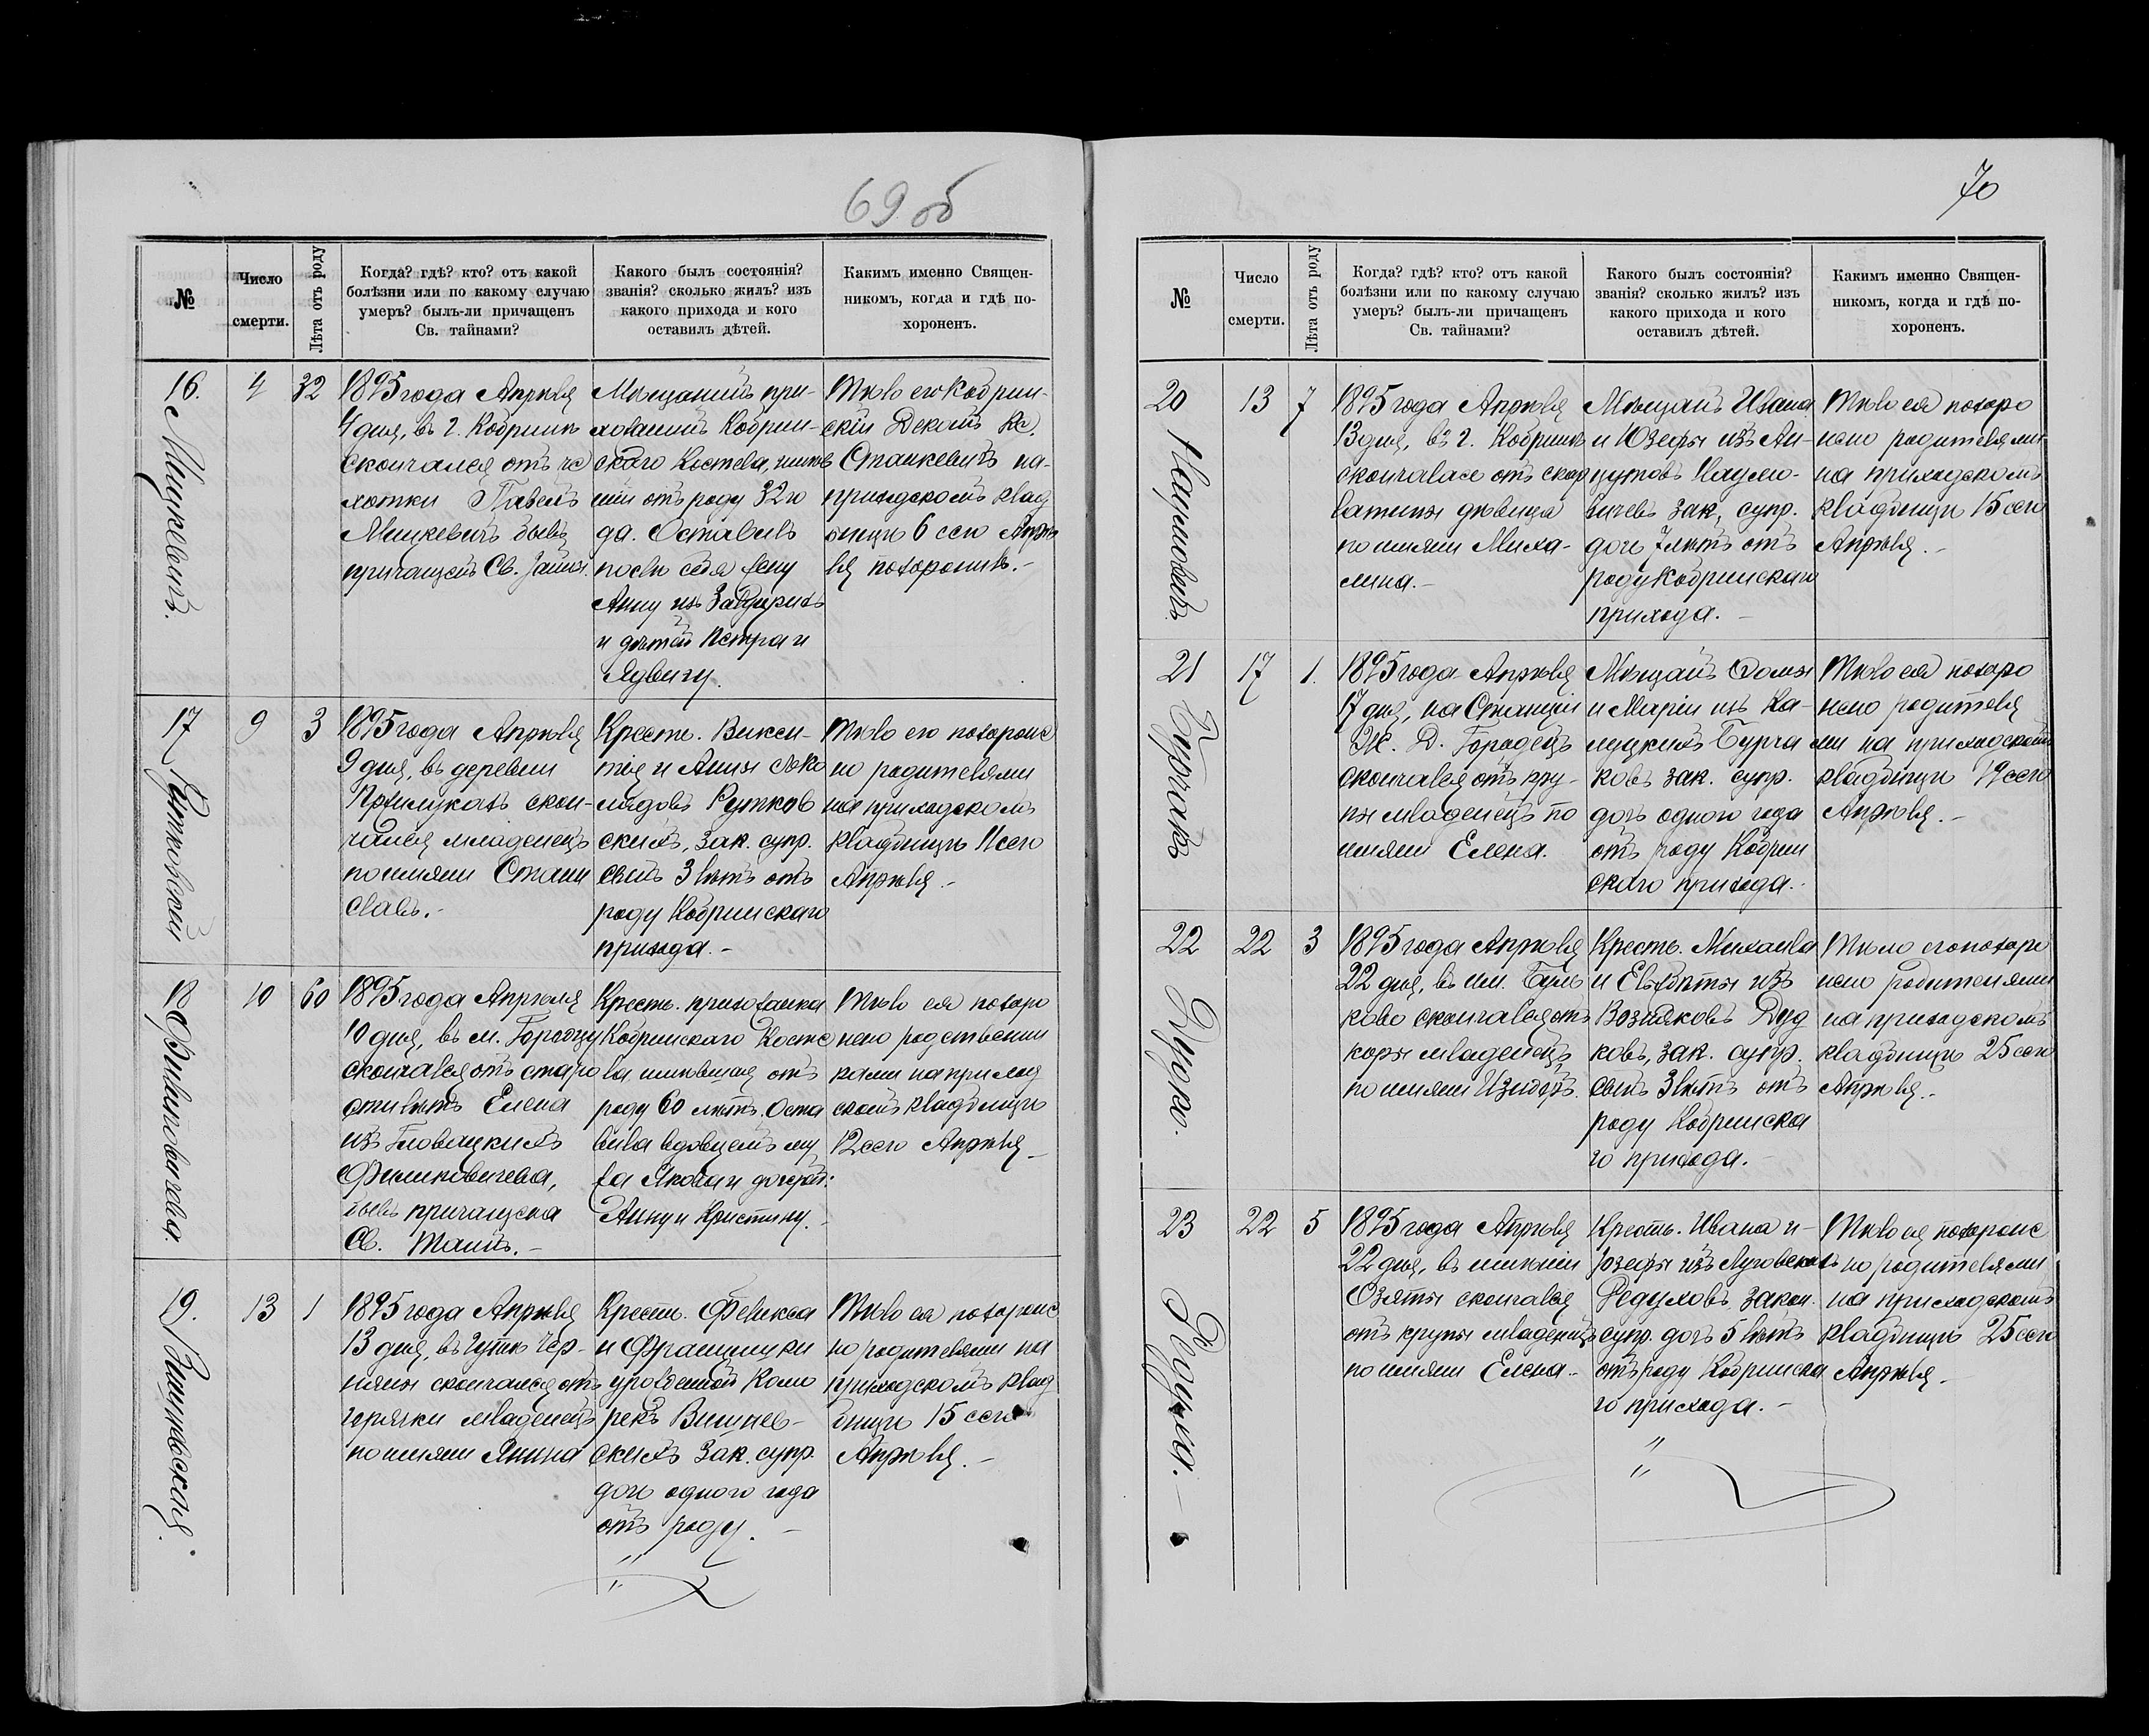 69 об
№
Число
смерти.
Лѣта отъ роду
Когда? гдѣ? кто? отъ какой
болѣзни или по какому случаю
умеръ? былъ-ли причащенъ
Св. тайнами?
Какого былъ состоянія?
званія? сколько жилъ? изъ
какого прихода и кого
оставилъ дѣтей.
Какимъ именно Священ-
никомъ, когда и гдѣ по-
хороненъ.
16.
Мицкевичъ.
4
32
1895 года Апрѣля
4 дня, въ г. Кобринѣ
скончался отъ ча
хотки Павелъ
Мицкевичъ бывъ
причащенъ Св. Тайнъ.
Мѣщанинъ при-
хожанинъ Кобрин-
скаго Костела, жив
шій отъ роду 32 го
да. Оставивъ
послѣ себя жену
Анну изъ
и дѣтей Петра и
Ядвигу.
Тѣло его Кобрин-
скій Деканъ Кс.
Станкевичъ на
приходскомъ клад
бищѣ 6 сего Апрѣ
ля похоронилъ.-
17
Рутковскій
9
3
1895 года Апрѣля
9 дня, въ деревни
скон-
чался младенецъ
по имяни Стани
славъ.-
Крестъ. Викен-
тія и Анны
Рутков
скихъ, зак. супр.
сынъ 3 лѣтъ отъ
роду Кобринскаго
прихода.-
Тѣло его похороне
но родителями
на приходскомъ
кладбищѣ 11 сего
Апрѣля.-
18
Филиповичева.
10
60
1895 года Апрѣля
10 дня, въ м. Городцу
скончался отъ старо
сти лѣтъ Елена
изъ Гловацкихъ
Филиповичева,
бывъ причащена
Св. Таинъ.-
Крестъ. прихожанка
Кобринскаго Косте
ла жившая отъ
роду 60 лѣтъ. Оста
вила вдовцемъ му
жа Якова и дочерей:
Анну и Кристину.-
Тѣло ея похоро
нено родственни
ками на приход
скомъ кладбищѣ
12 сего Апрѣля-
19.
Вишневская.
13
1
1895 года Апрѣля
13 дня, въ Гутѣ Чер-
няны скончался отъ
горячки младенецъ
по имяни Янина
Крестъ. Феликса
и Францишки
урожденной Комо
рекъ Вишнев-
скихъ зак. супр.
дочь одного года
отъ роду.-
Тѣло ея похороне
но родителями на
приходскомъ клад
бищѣ 15 сего
Апрѣля.-
70
№
Число
смерти.
Лѣта отъ роду
Когда? гдѣ? кто? отъ какой
болѣзни или по какому случаю
умеръ? былъ-ли причащенъ
Св. тайнами?
Какого былъ состоянія?
званія? сколько жилъ? изъ
какого прихода и кого
оставилъ дѣтей.
Какимъ именно Священ-
никомъ, когда и гдѣ по-
хороненъ.
20
Наумовичъ.
13
7
1895 года Апрѣля
13 дня, въ г. Кобринѣ
скончалась отъ скар
латины дѣвица
по имяни Миха-
лина.-
Мѣщанъ Ивана
и Юзефы изъ Ан-
цутовъ Наумо-
вичевъ зак, супр.
дочь 7 лѣтъ отъ
роду Кобринскаго
прихода.-
Тѣло ея похоро
нено родителями
на приходскомъ
кладбищѣ 15 сего
Апрѣля.-
21
Бурчакъ
17
1.
1895 года Апрѣля
17 дня, на Станціи
Ж. Д. Городецъ
скончался отъ кру-
пы младенецъ по
имяни Елена.
Мѣщанъ Фомы
и Маріи изъ Ка-
луцкихъ Бурча
ковъ зак. супр.
дочь одного года
отъ роду Кобрин
скаго прихода.-
Тѣло ея похоро
нено родителя
ми на приходскомъ
кладбищѣ 19 сего
Апрѣля.-
22
Дудко.
22
3
1895 года Апрѣля
22 дня, въ им. Буль
ково скончался отъ
коры младенецъ
по имяни Изидоръ.
Крестъ. Михаила
и изъ
Возняковъ Дуд
ковъ, зак. супр.
сынъ 3 лѣтъ отъ
роду Кобринска
го прихода.-
Тѣло его похоро
нено родителями
на приходскомъ
кладбищѣ 25 сего
Апрѣля.-
23
Редуха.-
22
5
1895 года Апрѣля
22 дня, въ имѣніи
Озяты скончался
отъ крупы младенецъ
по имяни Елена.-
Крестъ. Ивана и-
Юзефы изъ Луговскихъ
Редуховъ, закон.
супр. дочь 5 лѣтъ
отъ роду Кобринска
го прихода.-
Тѣло ея похороне
но родителями
на приходскомъ
кладбищѣ 25 сего
Апрѣля.-